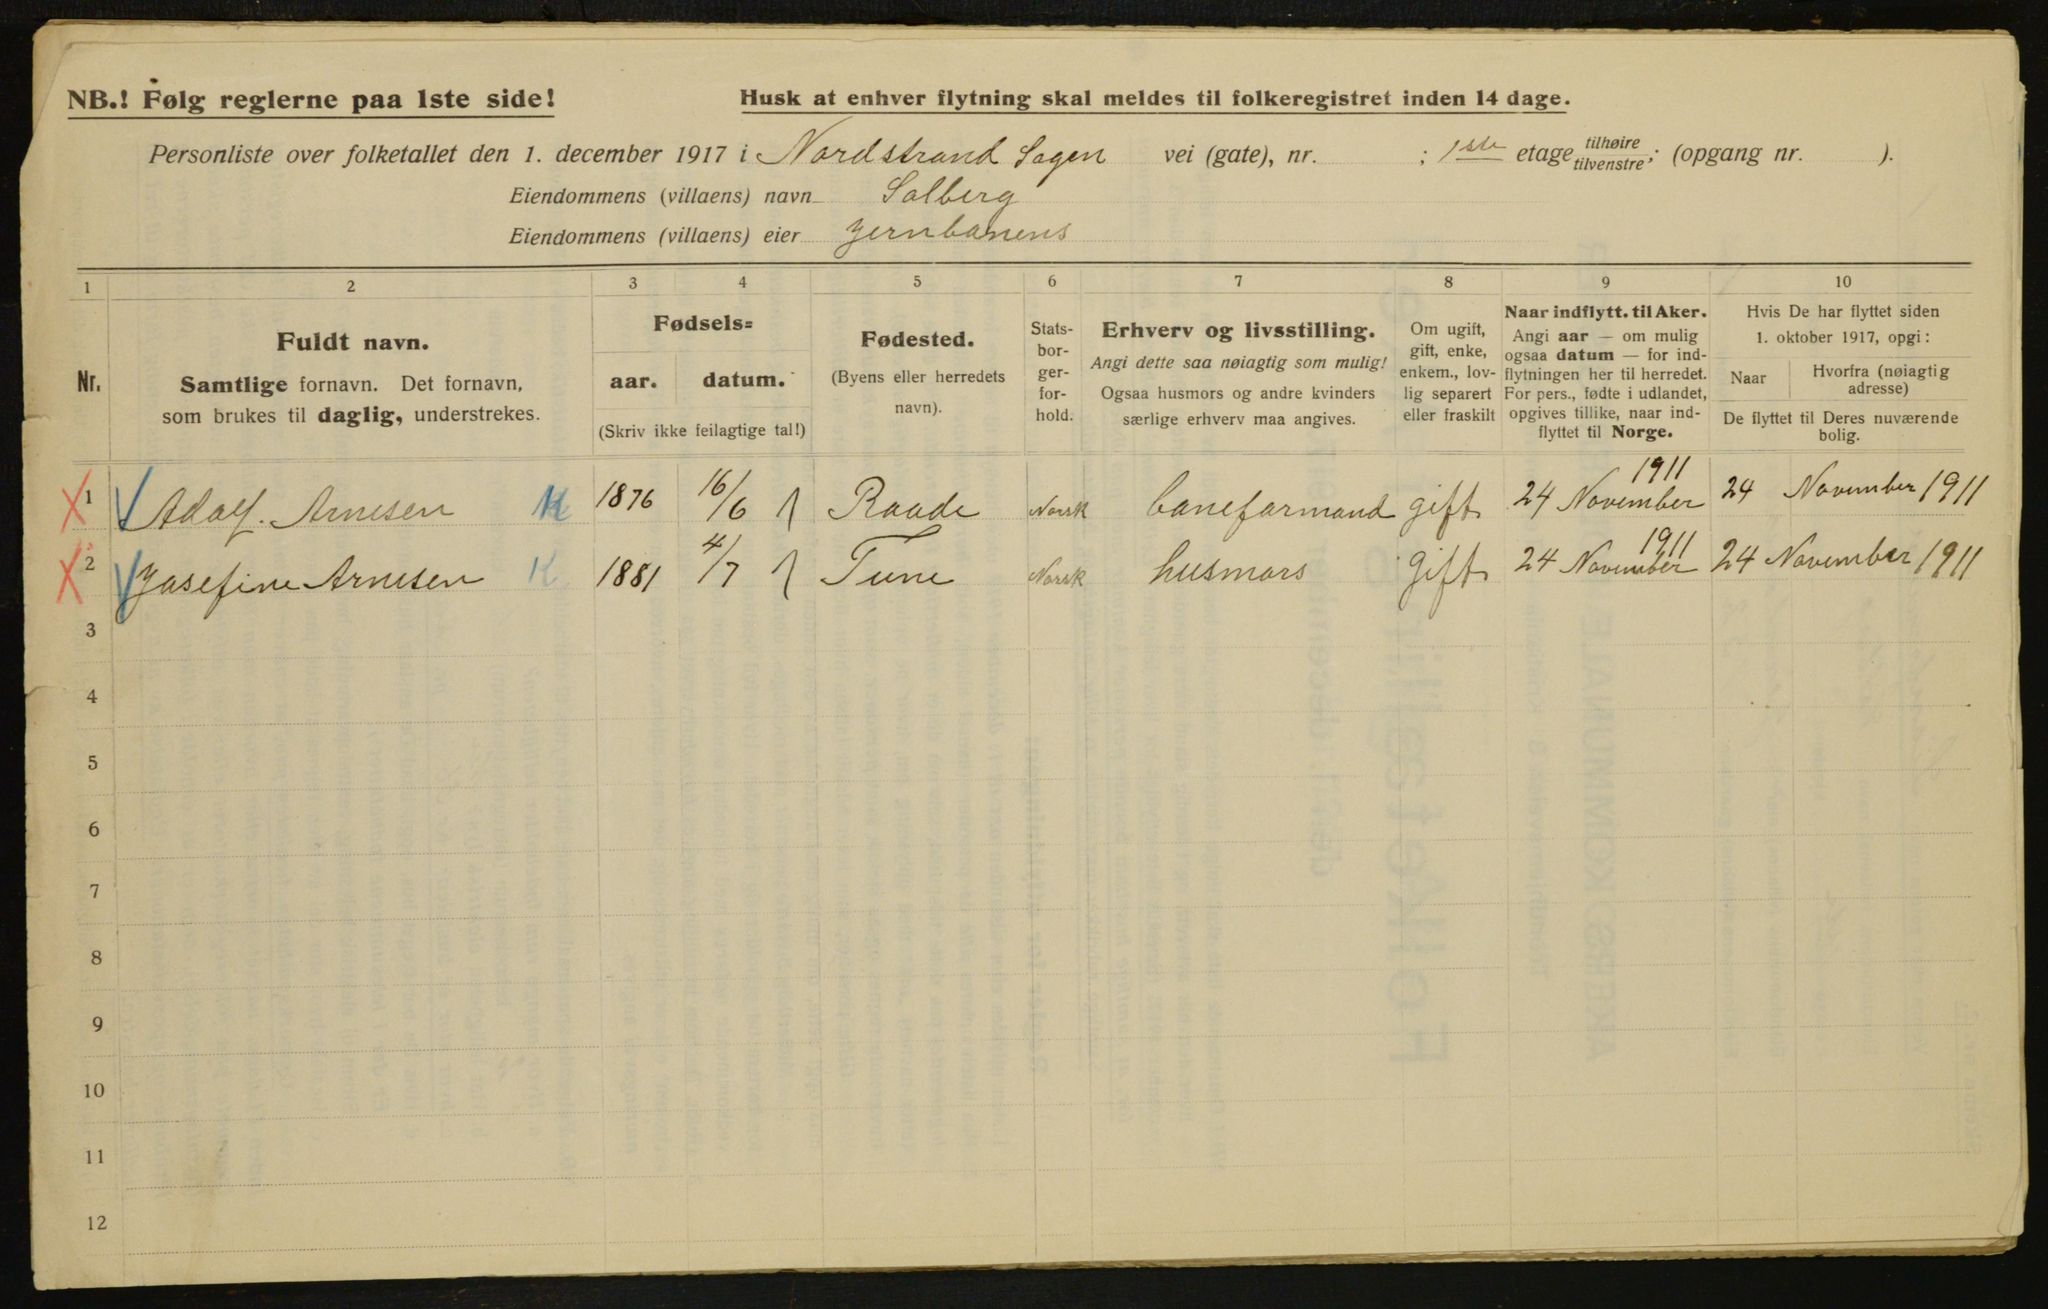 NB.! Følg reglerne paa 1ste side!
Husk at enhver flytning skal meldes til folkeregistret inden 14 dage.
Personliste over folketallet den 1. december 1917 i Nordstrand Sagen vei (gate), nr. ; 1ste etage tilhøire tilvenstre; (opgang nr. ).
Eiendommens (villaens) navn Solberg
Eiendommens (villaens) eier Jernbanens
1 2 3 4 5 6 7 8 9 10
Nr.
Fuldt navn.
Samtlige fornavn. Det fornavn,
som brukes til daglig, understrekes.
Fødsels=
aar. datum.
(Skriv ikke feilagtige tal!)
Fødested.
(Byens eller herredets
navn).
Stats-
bor-
ger-
for-
hold.
Erhverv og livsstilling.
Angi dette saa nøiagtig som mulig!
Ogsaa husmors og andre kvinders
særlige erhverv maa angives.
Om ugift,
gift, enke,
enkem., lov-
lig separert
eller fraskilt
Naar indflytt. til Aker.
Angi aar — om mulig
ogsaa datum — for ind-
flytningen her til herredet.
For pers., fødte i udlandet,
opgives tillike, naar ind-
flyttet til Norge.
Hvis De har flyttet siden
1. oktober 1917, opgi:
Naar
Hvorfra (nøiagtig
adresse)
De flyttet til Deres nuværende
bolig.
1 Adolf. Arnesen K 1876 16/6 Raade Norsk baneformand gift 24 November 1911 24 November 1911
2 Josefine Arnesen K 1881 4/7 Tune Norsk husmors gift 24 November 1911 24 November 1911
3
4
5
6
7
8
9
10
11
12